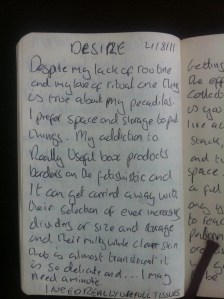 DESIRE 21/8/11
Despite my lack of routine
and my love of ritual one thing
is true about my pecadiloes.
I prefer space and storage to put
things. My addiction to
Really Useful box products
borders on the fetishistic and
I can get carried away with
their selection of ever increasing
dividers of size and storage
and their milky white clear skin
that is almost translucent it
is so delicate and... I may
need a minute.
I NEED REALLY USEFUL TISSUES
Getting
the
collect
as you
like
stack,
and
space
a full
any
to reac